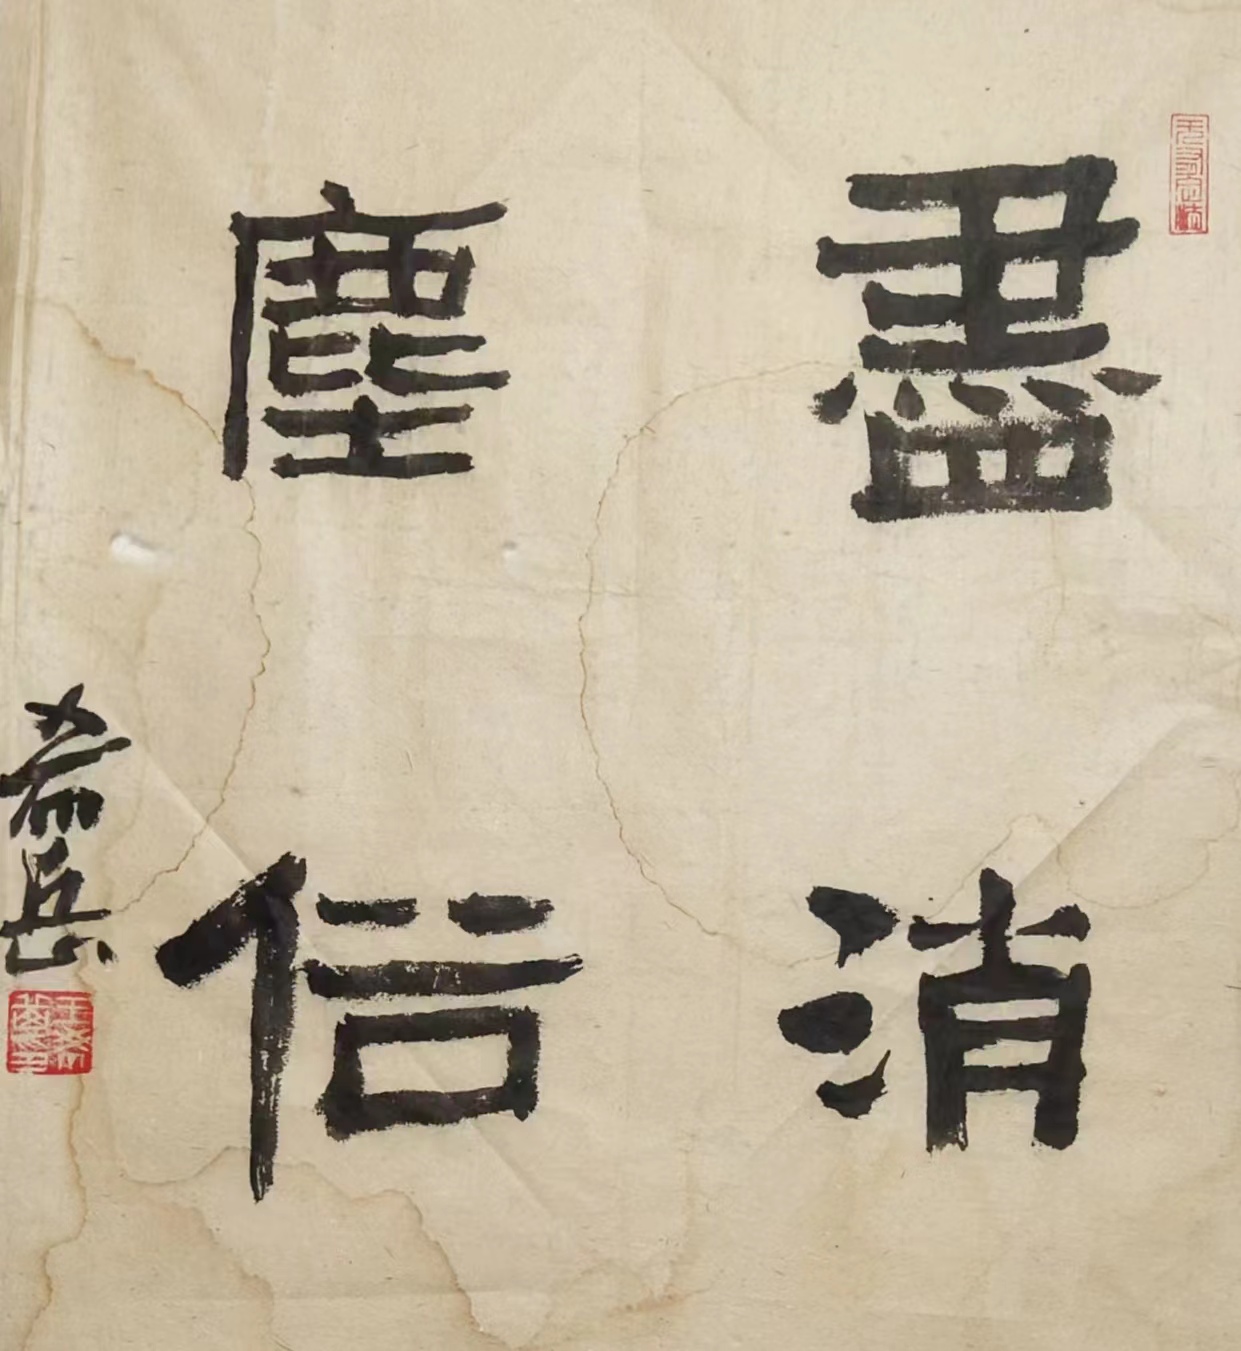 盡消
塵俗
希岳